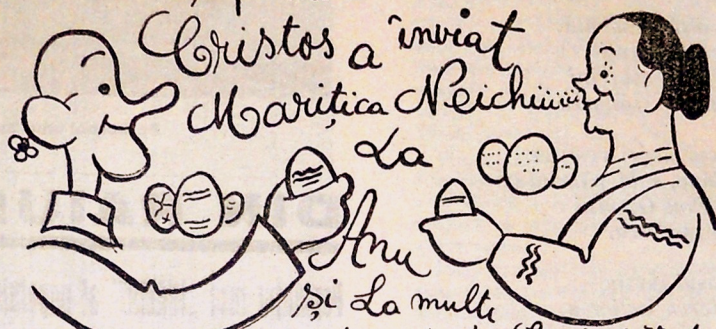 Cristos a înviat
Marițica Neichiiiiii
La
Anu
și La mulți